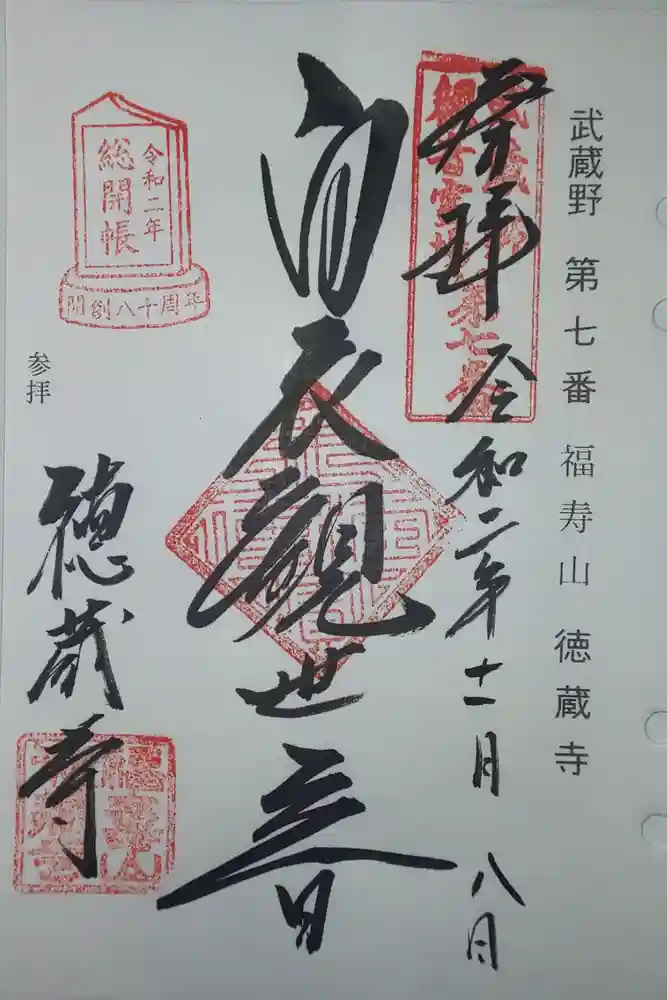 武蔵野 第七番 福寿山 徳蔵寺
奉拝 令和二年十一月 八日
白衣觀世音
令和二年
総開帳
開創八十周年
参拝
徳蔵寺